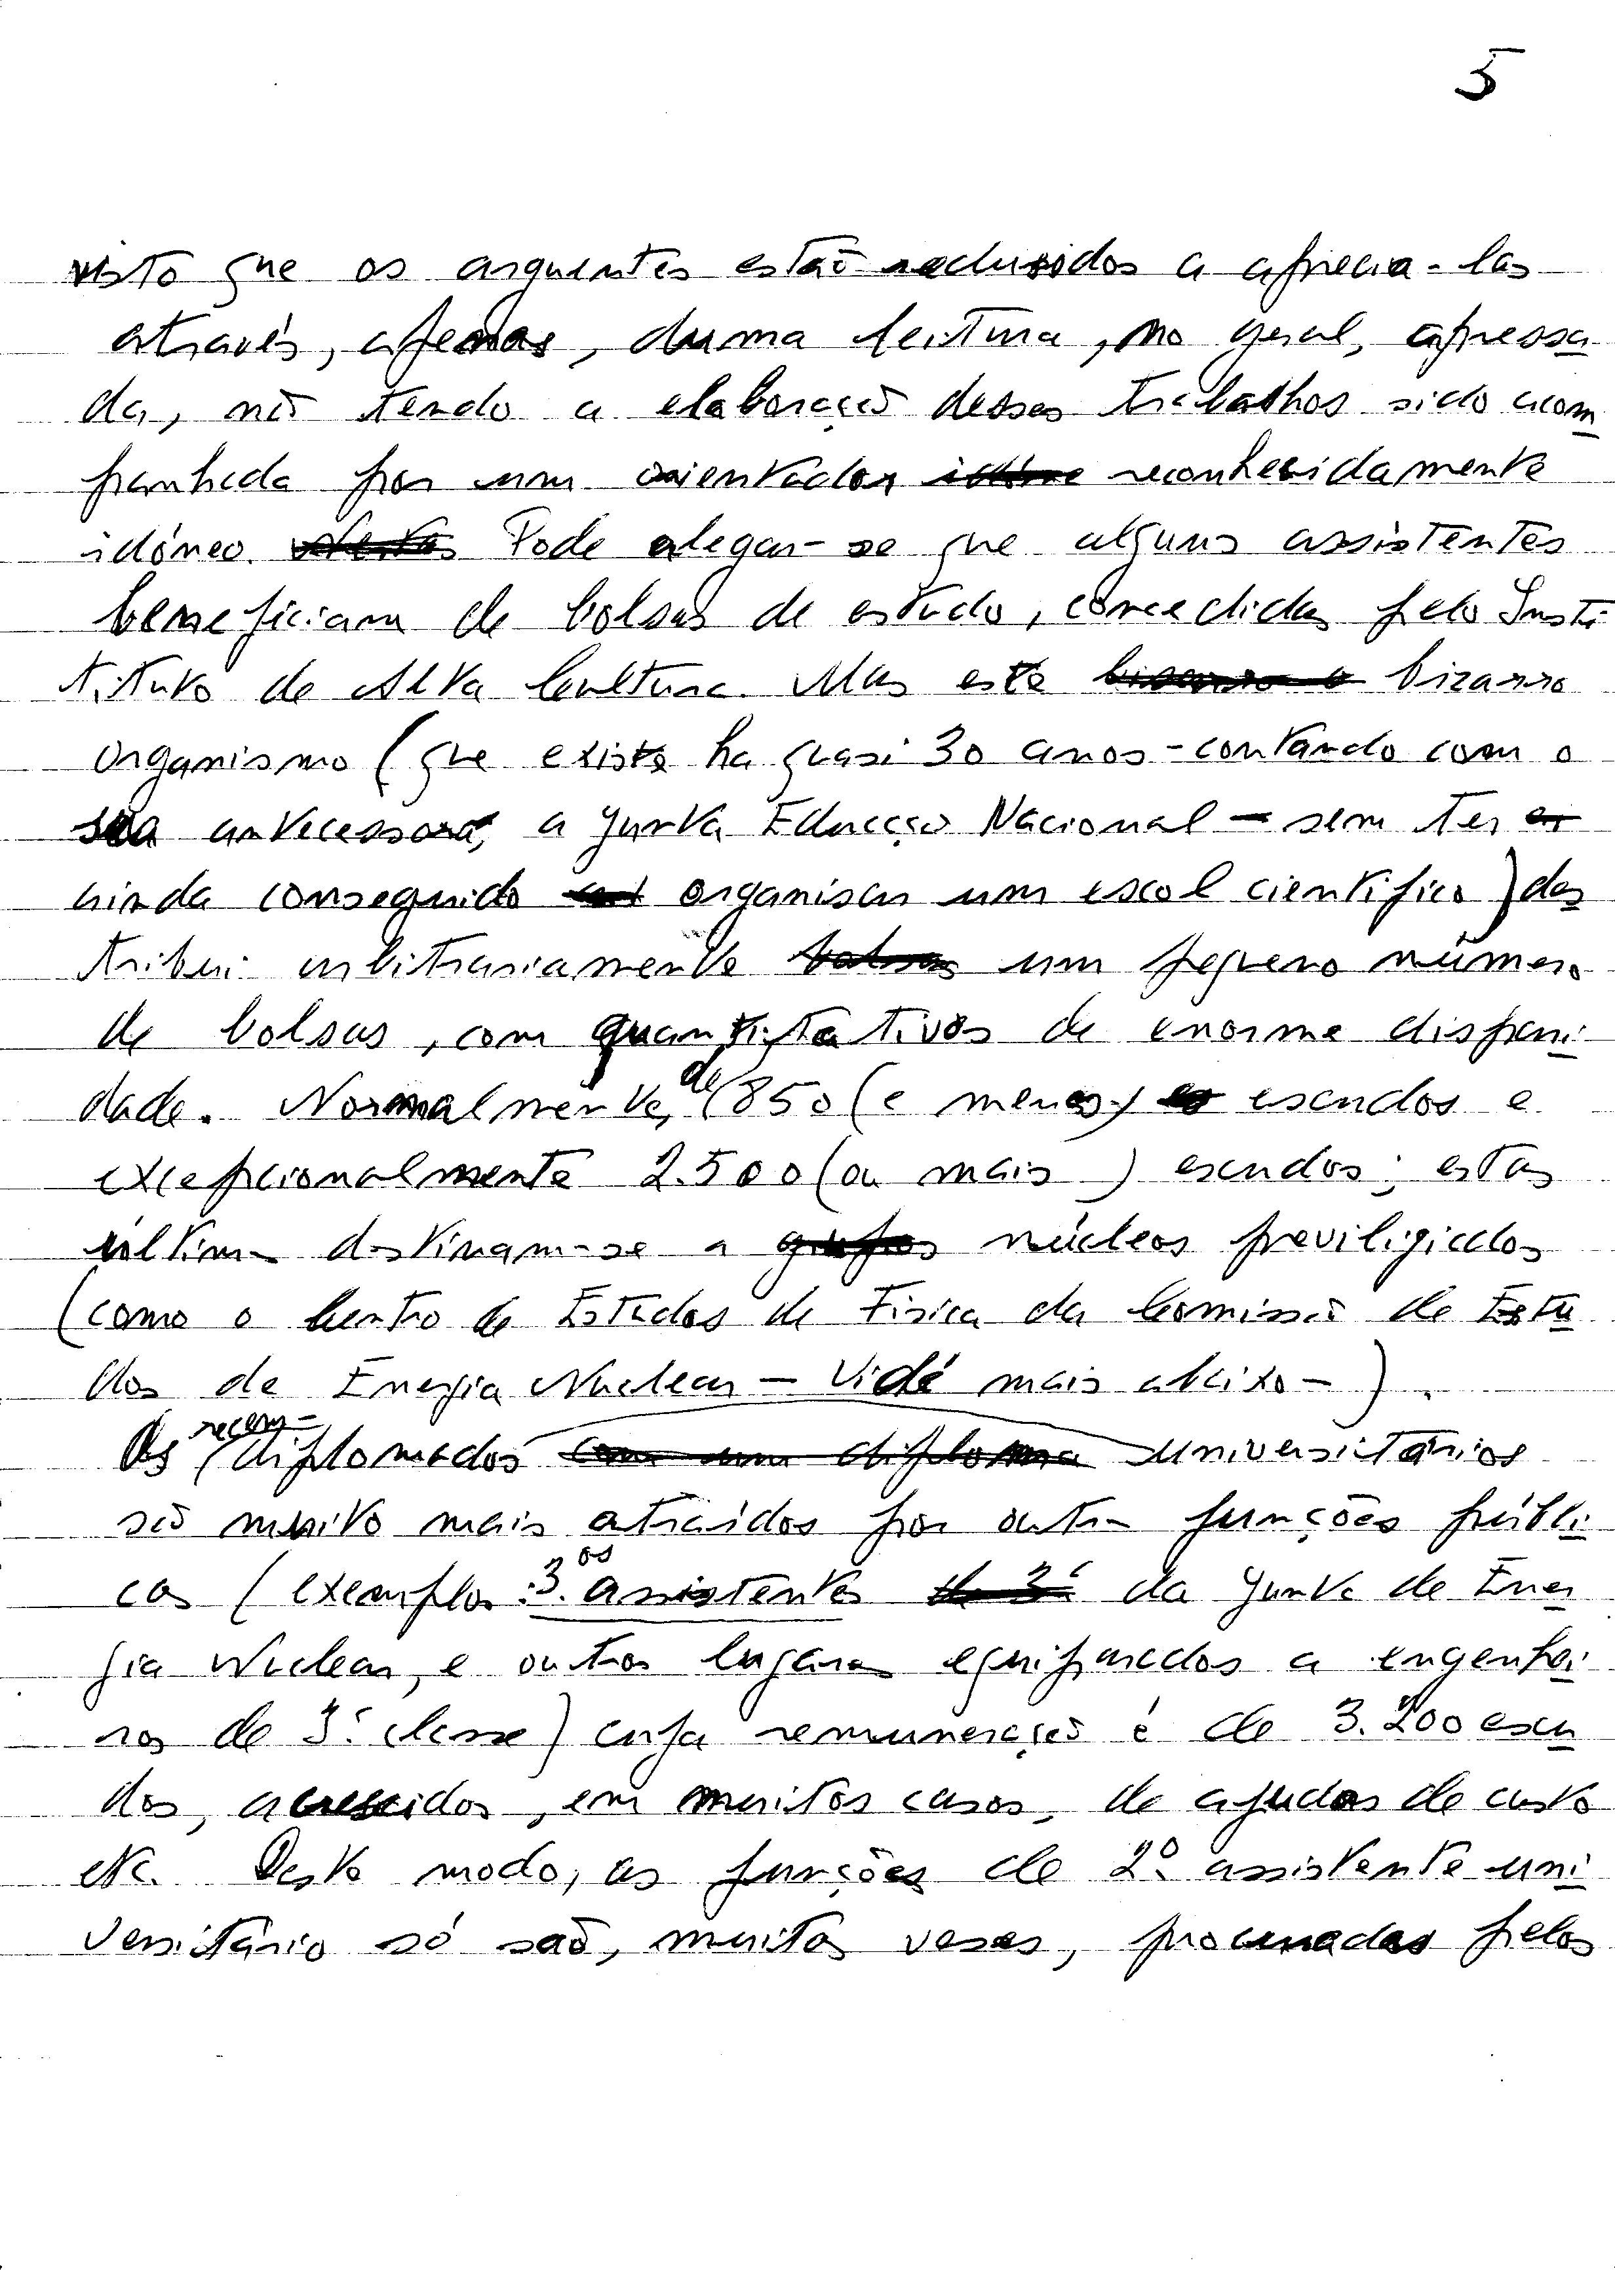 5
visto que os arguentes estão redusidos a aprecia-las
através, apenas, duma leitura, no geral, apressa
da, não tendo a elaboração desses trabalhos sido acom
panhada por um orientador reconhecidamente
idóneo. Pode alegar-se que alguns assistentes
beneficiam de bolsas de estudo, concedidas pelo Insti
tituto de Alta Cultura. Mas este bizarro
organismo (que existe ha quasi 30 anos - contando com o
sua antecessora, a Junta Educação Nacional - sem ter
ainda conseguido organisar um escol cientifico) des
tribui arbitrariamente um pequeno número
de bolsas, com quantitativos de enorme dispari
dade. Normalmente, de 850 (e menos) escudos e
excepcionalmente 2.500 (ou mais) escudos; estas
últimas destinam-se a núcleos previligiados
(como o Centro de Estudos de Fisica da Comissão de Estu
dos de Energia Nuclear - Vidé mais abaixo -).
Os recem-diplomados universitários
são muito mais atraídos por outras funções públi
cas (exemplos: 3.os assistentes da Junta de Ener
gia Nuclear, e outros lugares equiparados a engenhei
ros de 3ª classe) cuja remuneração é de 3.200 escu
dos, acrescidos, em muitos casos, de ajudas de custo
etc. Deste modo, as funções de 2º assistente uni
versitário só saõ, muitas veses, procuradas pelos